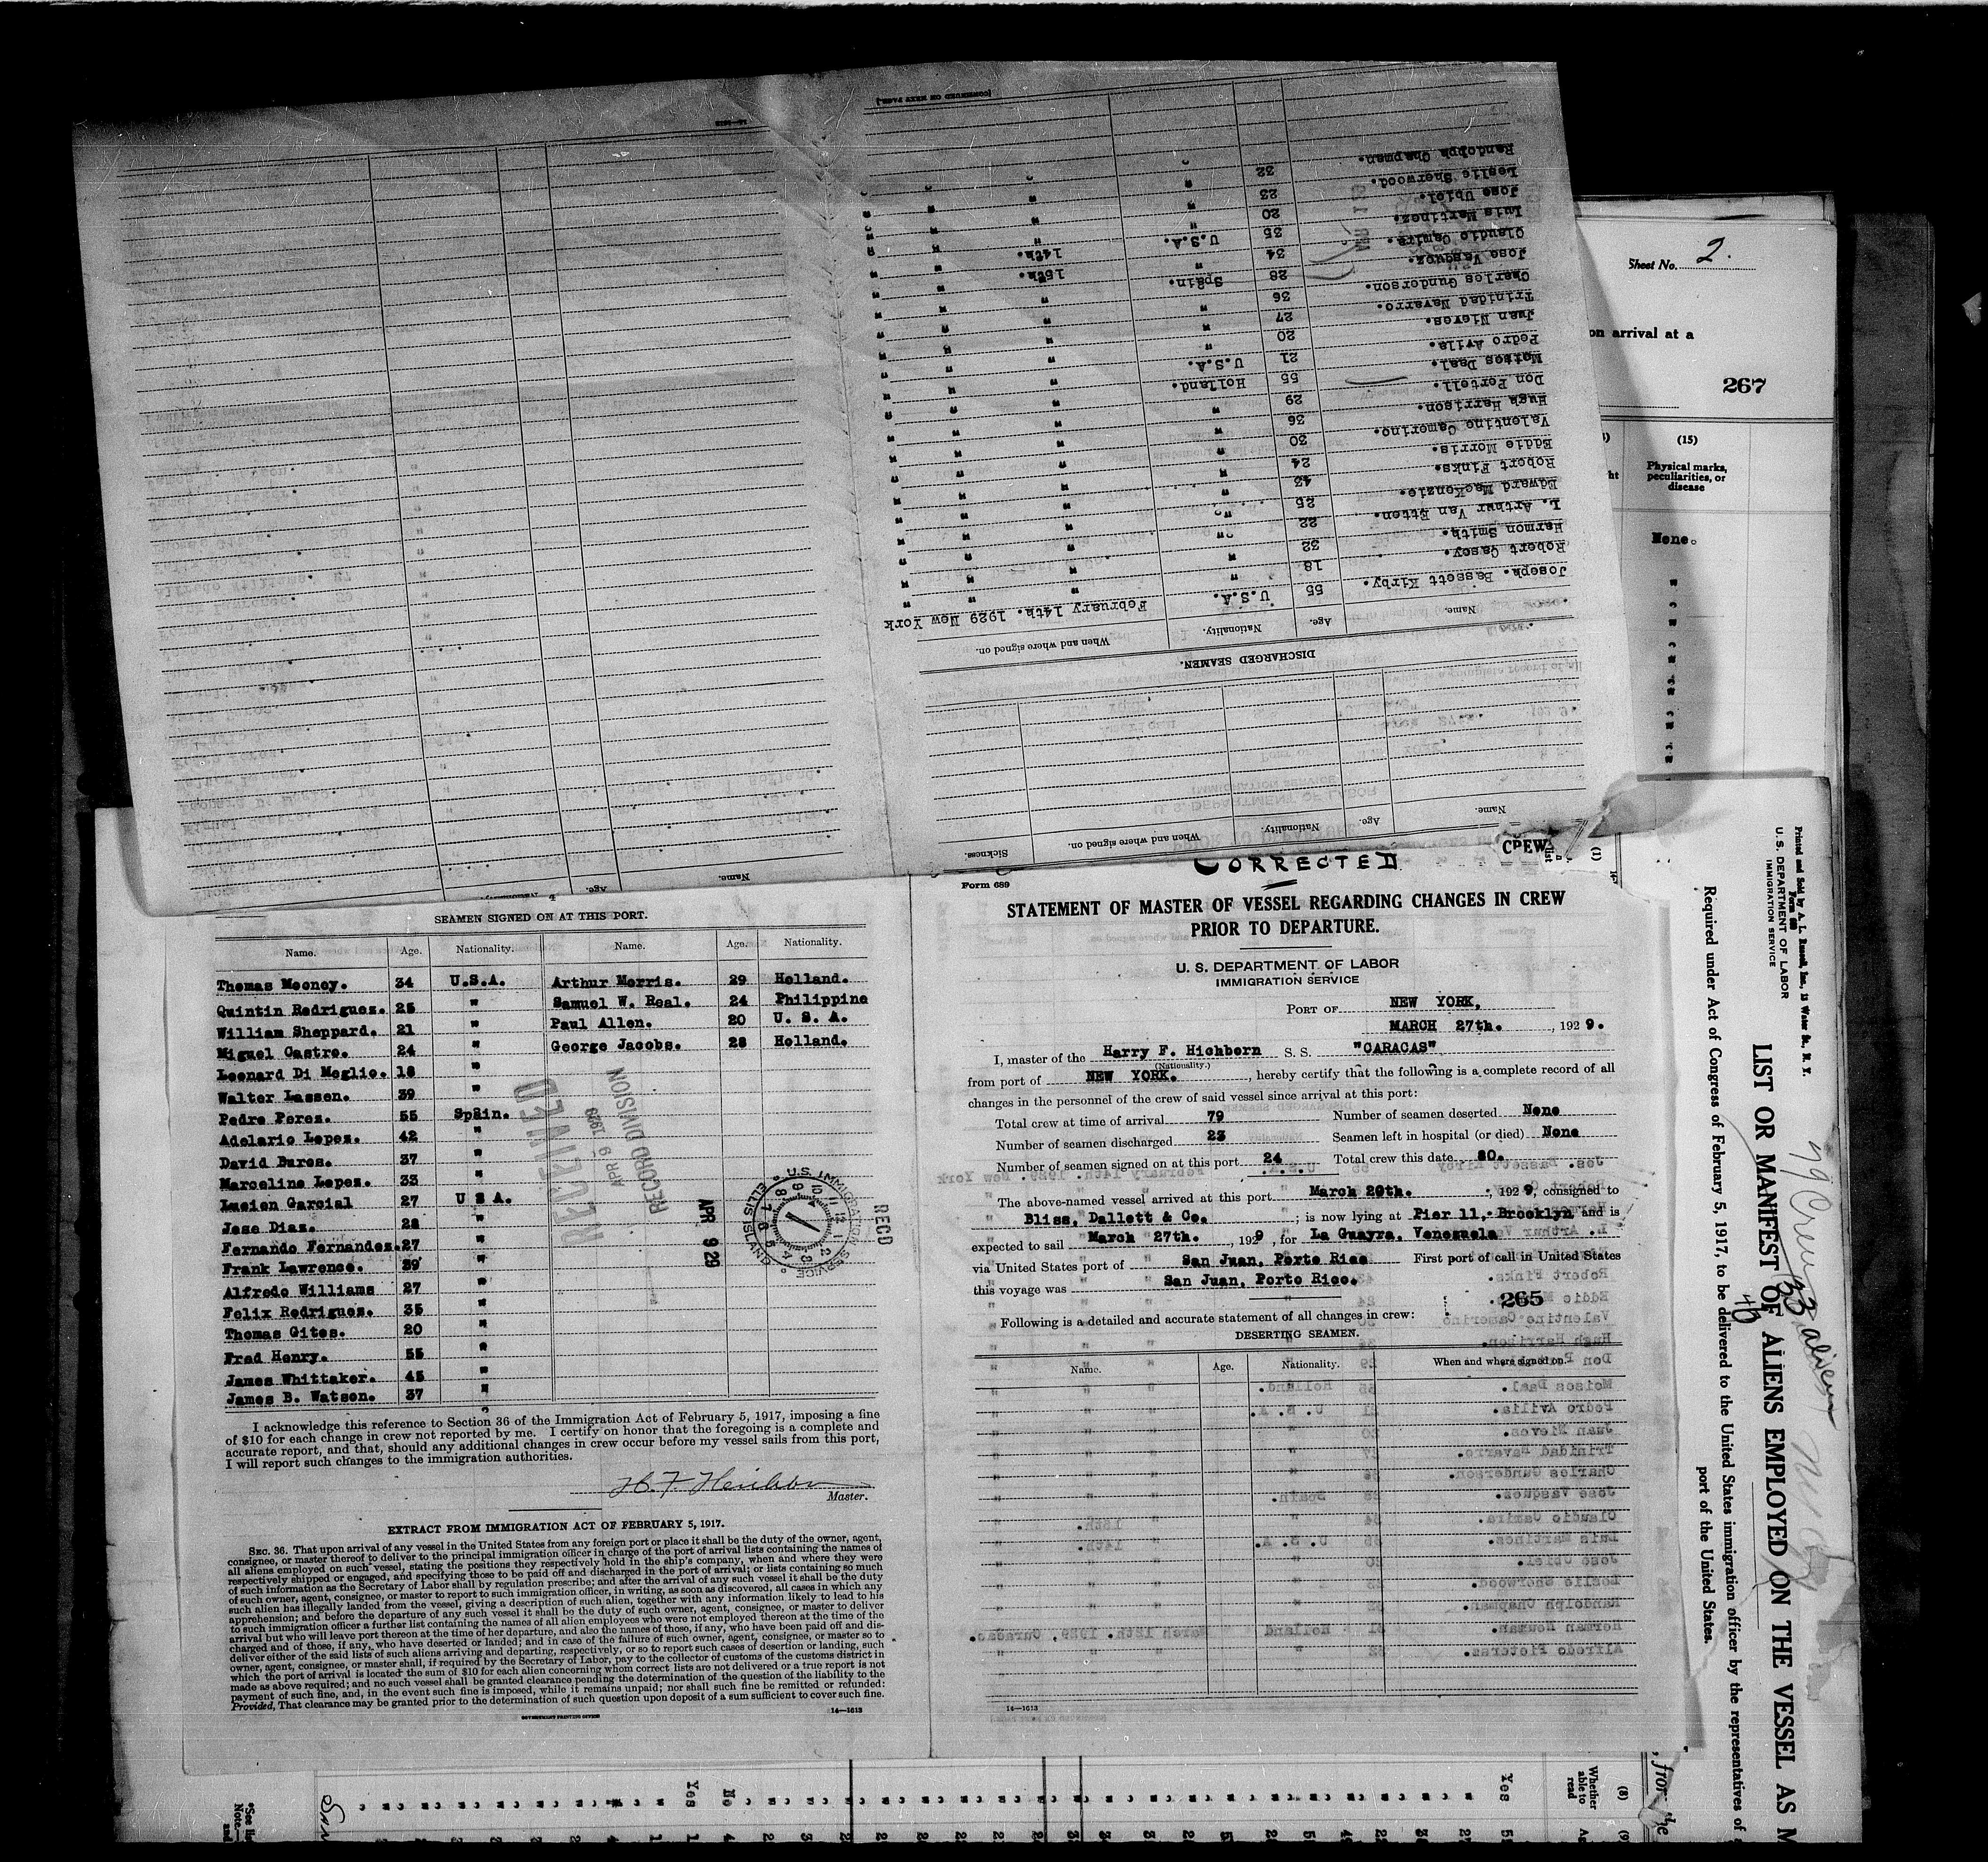 CORRECTED
CREW
Form 689
STATEMENT OF MASTER OF VESSEL REGARDING CHANGES IN CREW
PRIOR TO DEPARTURE.
U. S. DEPARTMENT OF LABOR
IMMIGRATION SERVICE
PORT OF NEW YORK,
MARCH 27th. , 1929.
I, master of the Harry F. Hichborn S. S. "CARACAS"
(Nationality.)
from port of NEW YORK. , hereby certify that the following is a complete record of all
changes in the personnel of the crew of said vessel since arrival at this port:
Total crew at time of arrival 79 Number of seamen deserted None
Number of seamen discharged 23 Seamen left in hospital (or died) None
Number of seamen signed on at this port 24 Total crew this date 80.
The above-named vessel arrived at this port March 20th. , 1929, consigned to
Bliss, Dallett & Co. ; is now lying at Pier 11, Brooklyn and is
expected to sail March 27th. , 1929, for La Guayra, Venezuela
via United States port of San Juan, Porto Rico First port of call in United States
this voyage was San Juan, Porto Rico.
265
Following is a detailed and accurate statement of all changes in crew:
DESERTING SEAMEN.
Name. Age. Nationality. When and where signed on.
14—1613
SEAMEN SIGNED ON AT THIS PORT.
Name. Age. Nationality. Name. Age. Nationality.
Thomas Mooney. 34 U.S.A. Arthur Morris. 29 Holland.
Quintin Rodriguez. 25 " Samuel W. Real. 24 Philippine
William Sheppard. 21 " Paul Allen. 20 U. S. A.
Miguel Castro. 24 " George Jacobs. 28 Holland.
Leonard Di Meglio. 18 "
Walter Lassen. 39 "
Pedro Perez. 55 Spain.
Adelario Lopez. 42 "
David Bures. 37 "
Marcelino Lopez. 33 "
Lucien Garcial 27 U S A.
Jose Diaz. 28 "
Fernando Fernandez. 27 "
Frank Lawrence. 39 "
Alfredo Williams 27 "
Felix Rodriguez. 35 "
Thomas Gites. 20 "
Fred Henry. 55 "
James Whittaker. 45 "
James B. Watson. 37 "
RECEIVED
APR 9 1929
RECORD DIVISION
REC'D
APR 9 29
U.S. IMMIGRATION SERVICE
ELLIS ISLAND
I acknowledge this reference to Section 36 of the Immigration Act of February 5, 1917, imposing a fine
of $10 for each change in crew not reported by me. I certify on honor that the foregoing is a complete and
accurate report, and that, should any additional changes in crew occur before my vessel sails from this port,
I will report such changes to the immigration authorities.
Master.
EXTRACT FROM IMMIGRATION ACT OF FEBRUARY 5, 1917.
SEC. 36. That upon arrival of any vessel in the United States from any foreign port or place it shall be the duty of the owner, agent,
consignee, or master thereof to deliver to the principal immigration officer in charge of the port of arrival lists containing the names of
all aliens employed on such vessel, stating the positions they respectively hold in the ship's company, when and where they were
respectively shipped or engaged, and specifying those to be paid off and discharged in the port of arrival; or lists containing so much
of such information as the Secretary of Labor shall by regulation prescribe; and after the arrival of any such vessel it shall be the duty
of such owner, agent, consignee, or master to report to such immigration officer, in writing, as soon as discovered, all cases in which any
such alien has illegally landed from the vessel, giving a description of such alien, together with any information likely to lead to his
apprehension; and before the departure of any such vessel it shall be the duty of such owner, agent, consignee, or master to deliver
to such immigration officer a further list containing the names of all alien employees who were not employed thereon at the time of the
arrival but who will leave port thereon at the time of her departure, and also the names of those, if any, who have been paid off and dis-
charged and of those, if any, who have deserted or landed; and in case of the failure of such owner, agent, consignee, or master so to
deliver either of the said lists of such aliens arriving and departing, respectively, or so to report such cases of desertion or landing, such
owner, agent, consignee, or master shall, if required by the Secretary of Labor, pay to the collector of customs of the customs district in
which the port of arrival is located the sum of $10 for each alien concerning whom correct lists are not delivered or a true report is not
made as above required; and no such vessel shall be granted clearance pending the determination of the question of the liability to the
payment of such fine, and, in the event such fine is imposed, while it remains unpaid; nor shall such fine be remitted or refunded:
Provided, That clearance may be granted prior to the determination of such question upon deposit of a sum sufficient to cover such fine.
GOVERNMENT PRINTING OFFICE
14—1613
Sickness.
Name. Age. Nationality. When and where signed on.
DISCHARGED SEAMEN.
Name. Age. Nationality. When and where signed on.
Joseph. Bassett Kirby. 55 U.S.A. February 14th. 1929 New York
Robert Casey. 18 " " " "
Harmon Smith. 32 " " " "
L. Arthur Van Etten. 22 " " " "
Edward MacKenzie. 25 " " " "
Robert Finks. 43 " " " "
Eddie Morris. 24 " " " "
Valentine Camerino. 30 " " " "
Hugh Harrison. 36 " " " "
Don Portell. 29 " " " "
Moises Deal. 55 Holland. " " "
Pedro Avila. 21 U.S.A. " " "
Juan Nieves. 20 " " " "
Trinidad Navarro. 27 " " " "
Charles Gunderson. 36 " " " "
Jose Vasquez. 28 Spain. " " "
Claudio Camire. 34 " 15th. " "
Luis Martinez. 35 U.S.A. 14th. " "
Jose Ubiel. 20 " " " "
Leslie Sherwood. 23 " " " "
Randolph Chapman. 32 " " " "
[CONTINUED ON NEXT PAGE.]
Name. Age. Nationality.
Sheet No. 2.
on arrival at a
267
(15)
Physical marks,
peculiarities, or
disease
None.
Printed and Sold by A. L. Russell, Inc., 13 Water St., N. Y.
U. S. DEPARTMENT OF LABOR
IMMIGRATION SERVICE
LIST OR MANIFEST OF ALIENS EMPLOYED ON THE VESSEL AS M
Required under Act of Congress of February 5, 1917, to be delivered to the United States immigration officer by the representatives of
port of the United States.
79 Crew
33 aliens
, from the
(8)
Whether
able to
read
Yes
No
Yes
*See li
Note.—